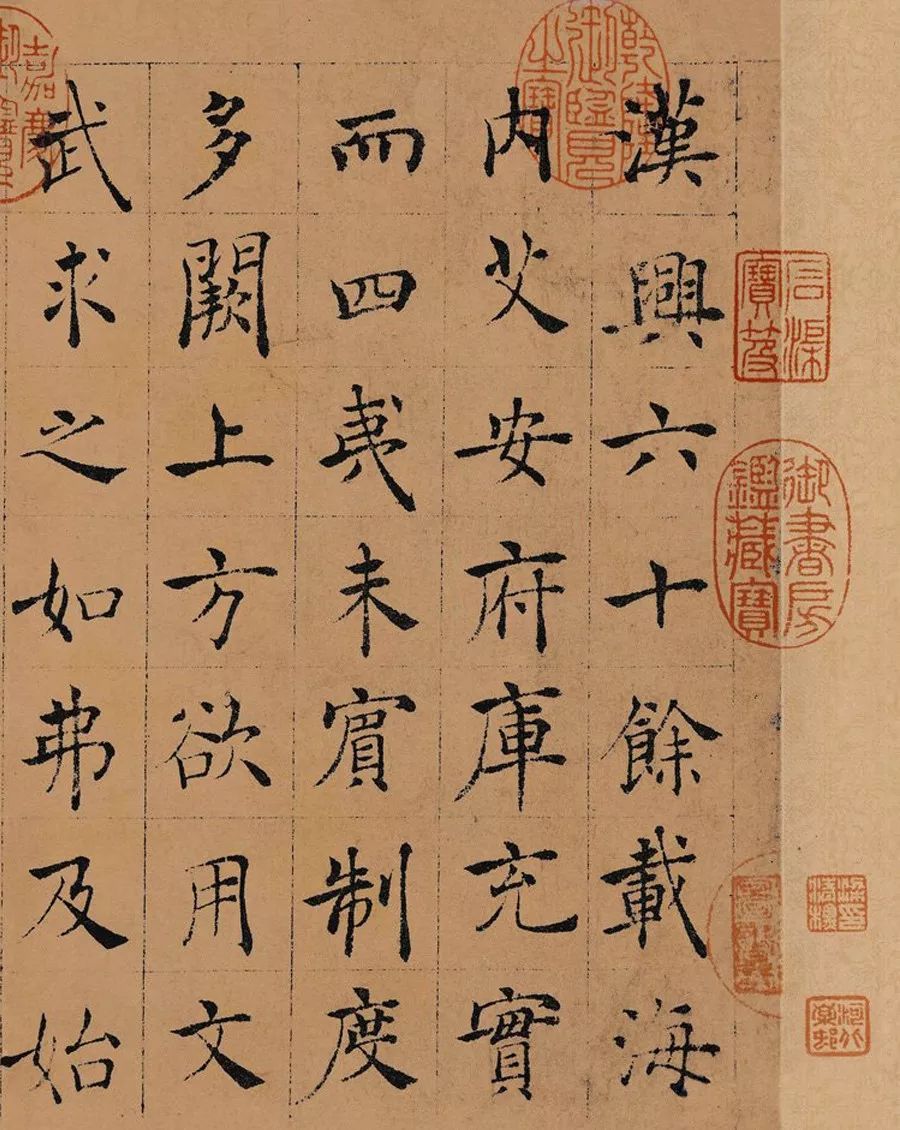 石渠寶笈
御書房鑑藏寶
河北棠村
乾隆御覽之寶
漢興六十餘載海
内艾安府庫充實
而四夷未賓制度
多闕上方欲用文
武求之如弗及始
嘉慶